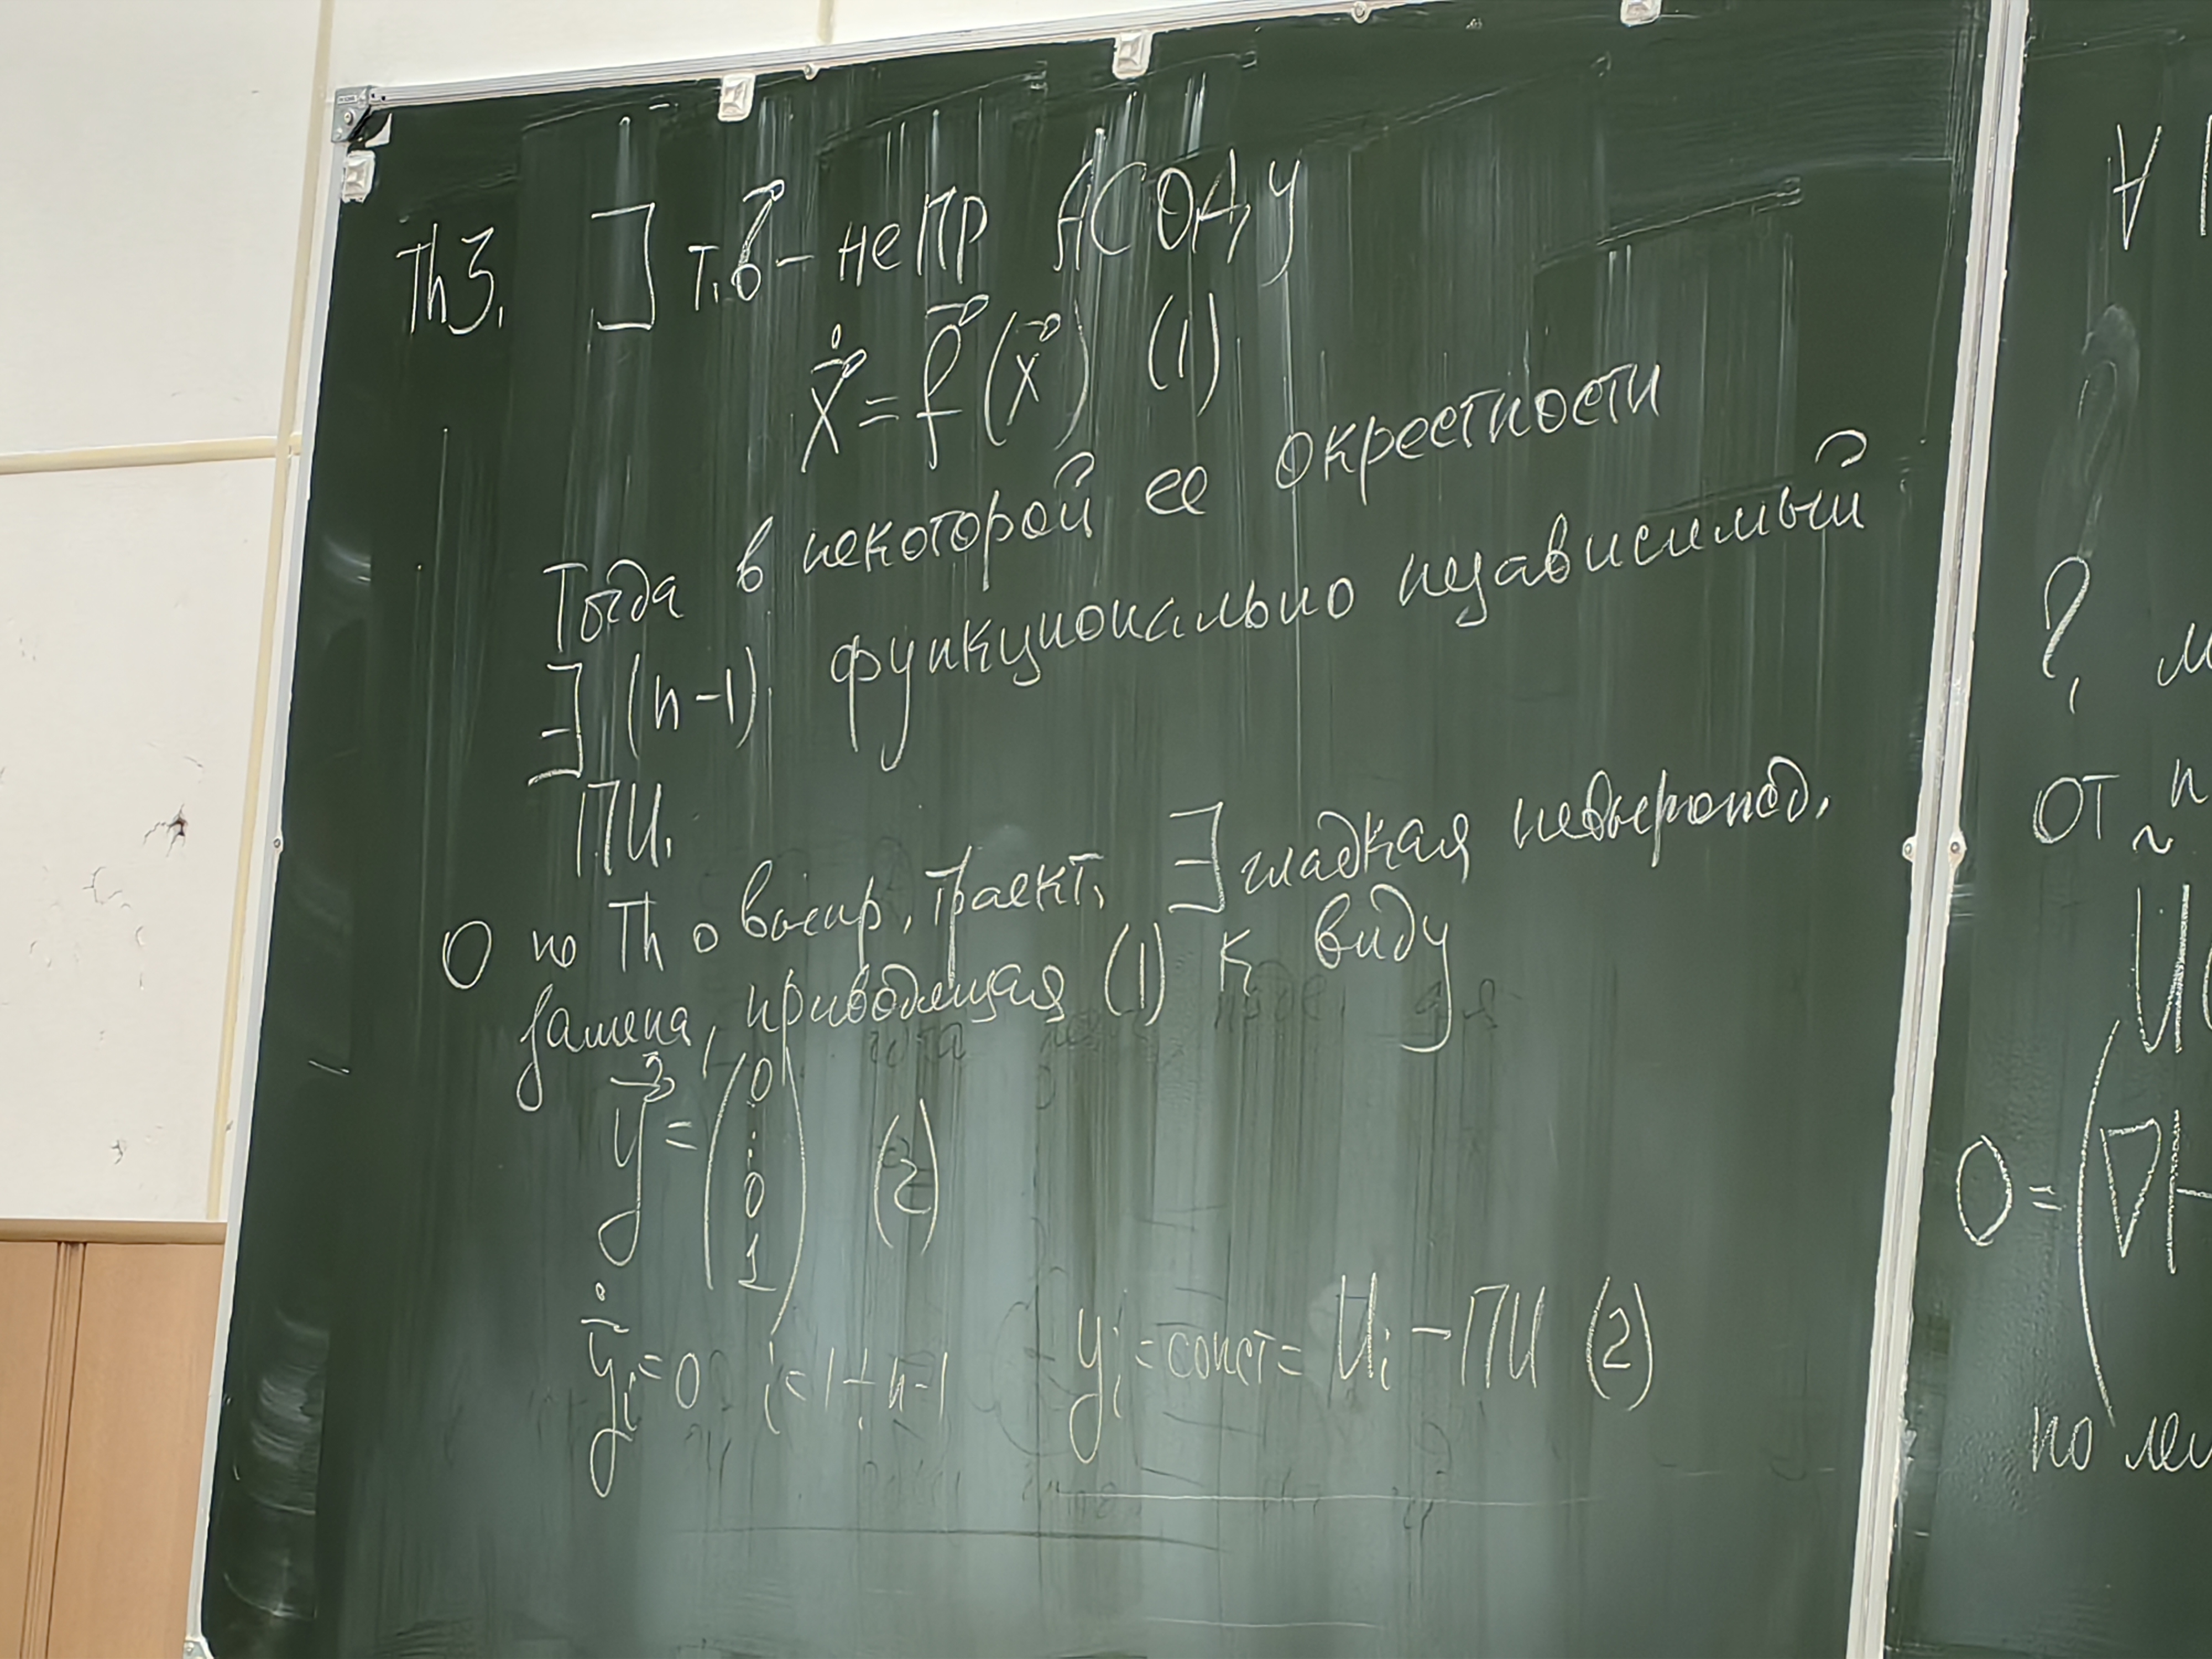 Th3. ∃ т. b⃗ – не ПР АСОДУ
ẋ⃗ = f⃗(x⃗) (1)
Тогда в некоторой ее окрестности
∃ (n-1) функционально независимый
ПИ.
О по Th о выпр. траект. ∃ гладкая невырожд.
замена, приводящая (1) к виду
ẏ⃗ = (0 ⋮ 0 1) (2)
ẏi = 0 i = 1 ÷ n-1 yi = const = Ui – ПИ (2)
∀
? м
от n
U(
0 = (∇H
по лем